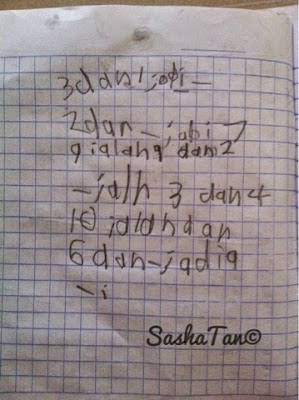 3 dan 1 jadi _
2 dan _ jadi 7
9 ialah 9 dan 2
_ jalh 3 dan 4
10 jaldh dan
6 dan _ jadi 9
_ i
SashaTan©